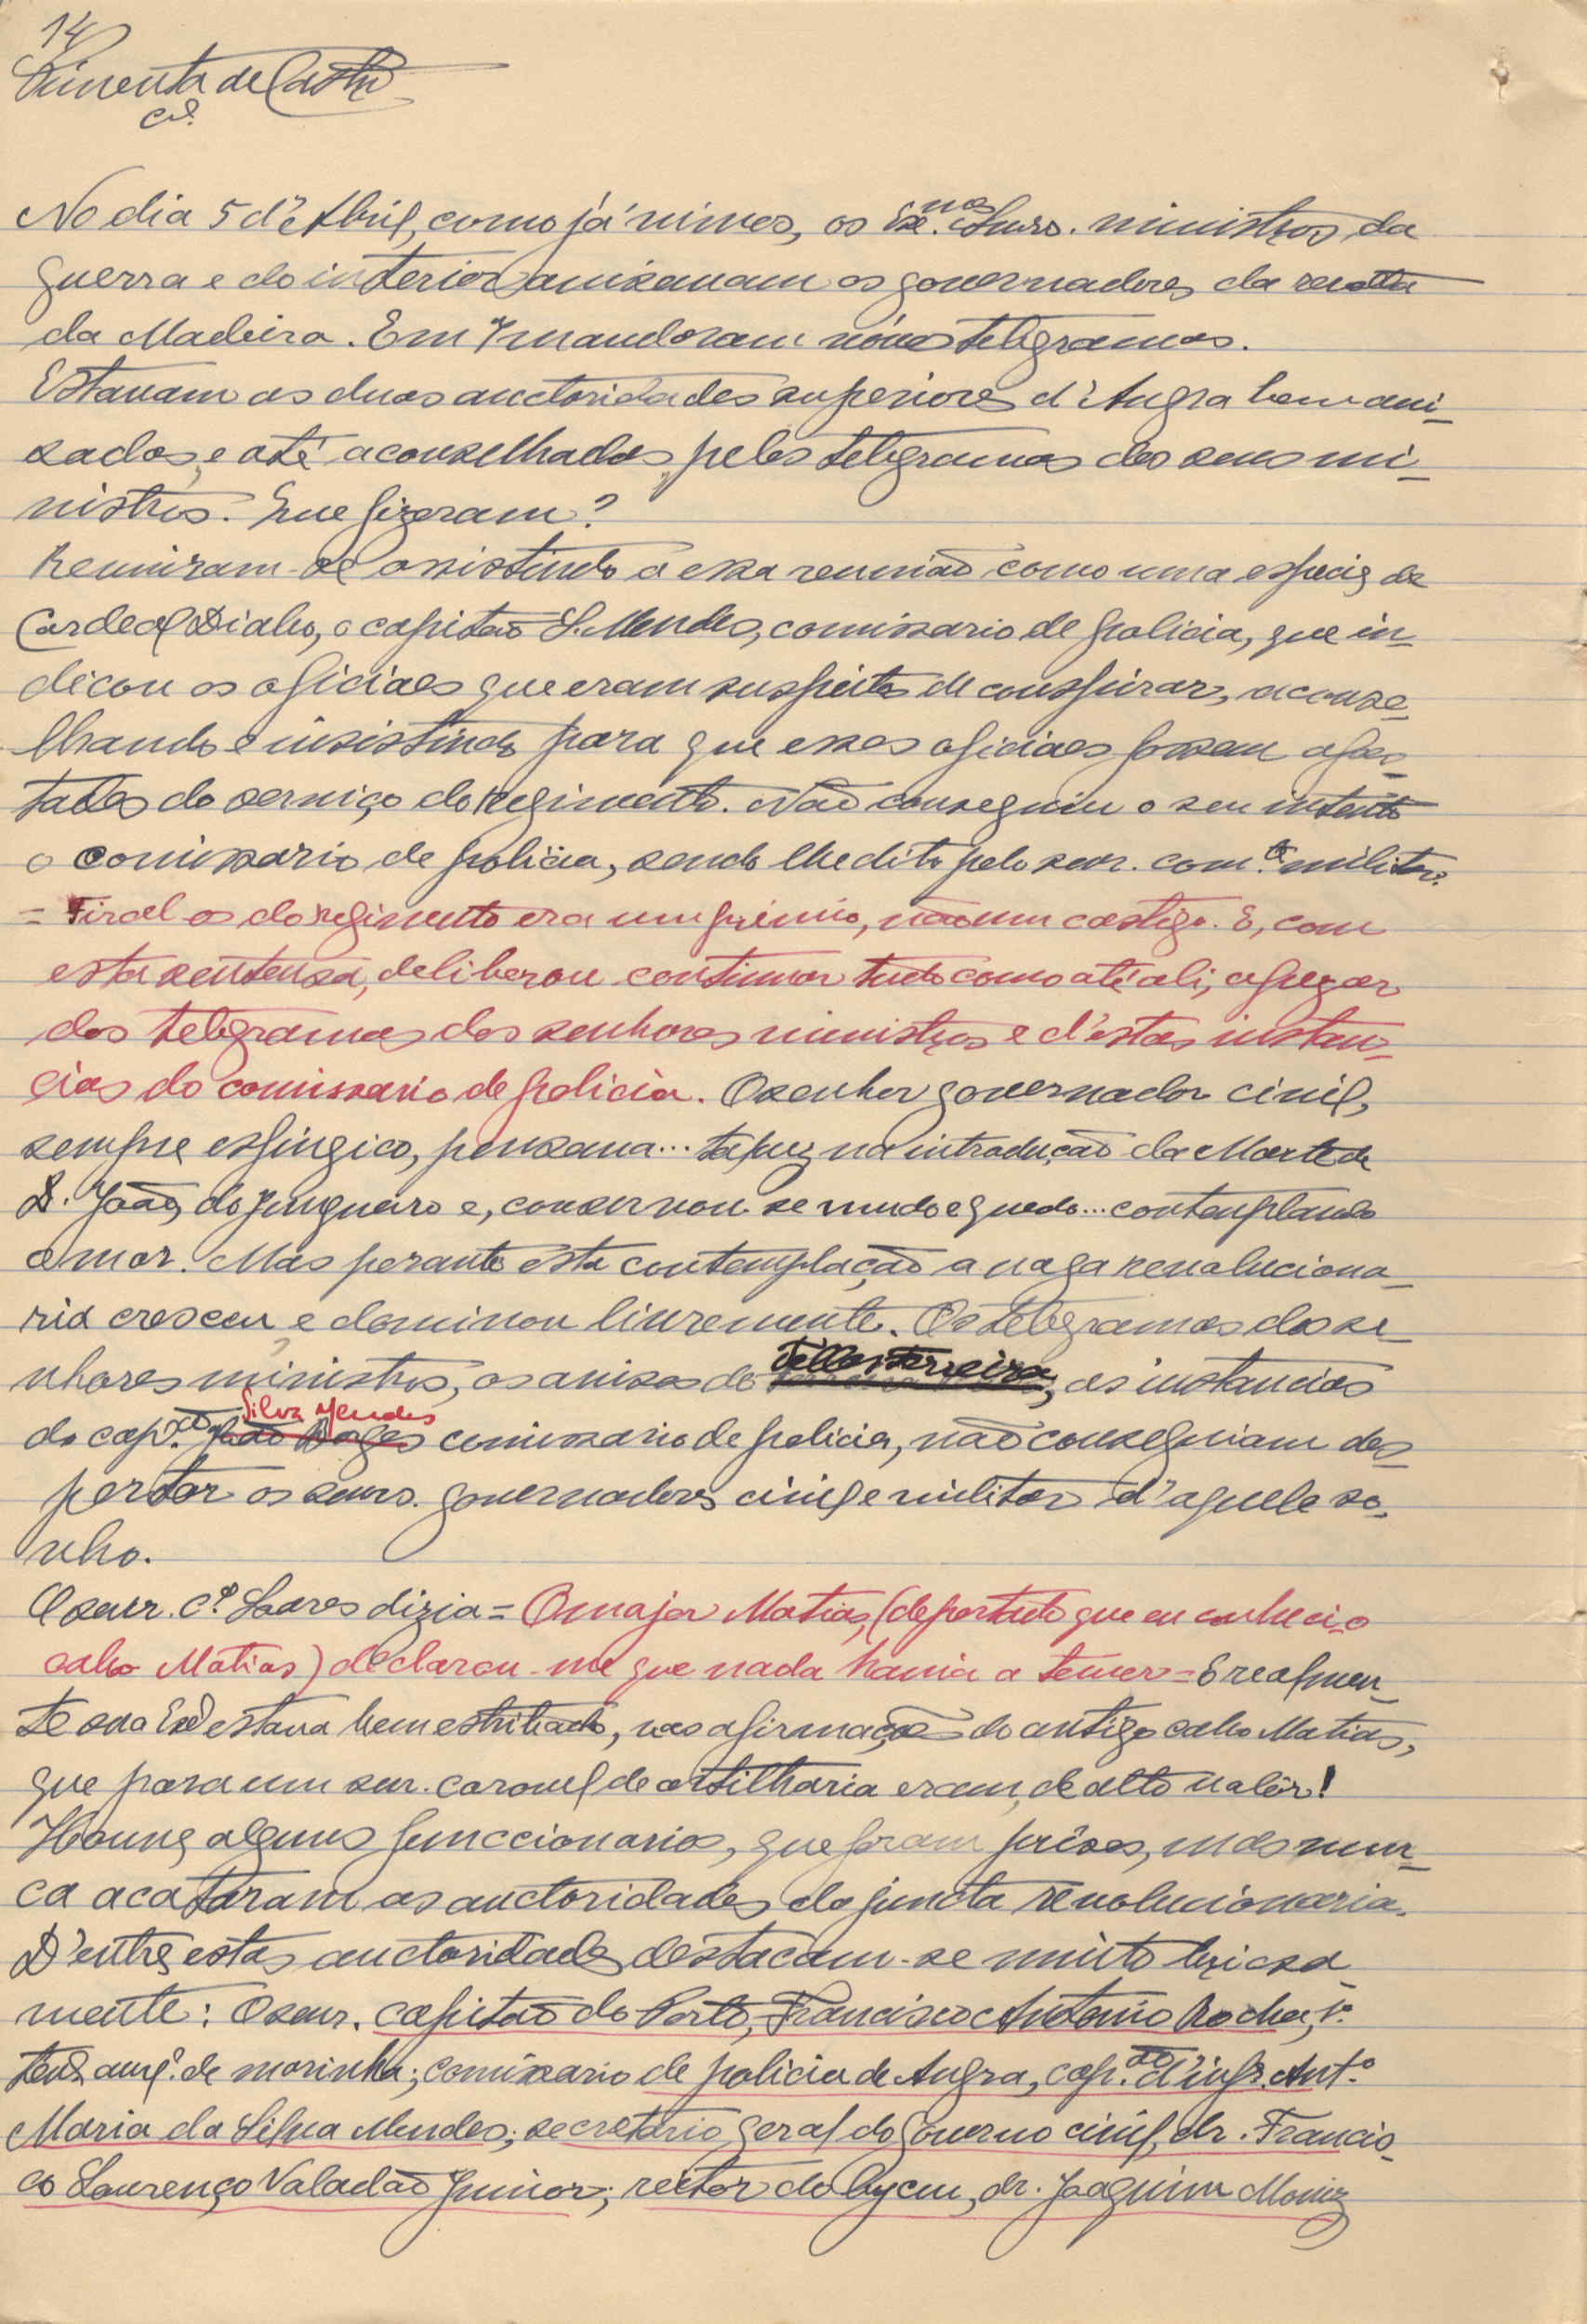 14
Pimenta de Castro
Cel.
No dia 5 d'Abril, como já vimos, os Exmos. Snrs. ministros da
guerra e do interior avisavam os governadores da revolta
da Madeira. Em 7 mandoram nóvos telegramas.
Estavam as duas auctoridades superiores d'Angra bem avi-
sados, e até aconselhados, pelos telegramas dos seus mi-
nistros. Que fizeram?
Reuniram-se assistindo a essa reunião como uma especie de
Cardeal Diabo, o capitão S. Mendes, comissario de policia, que in-
dicou os oficiaes que eram suspeitos de conspirar, aconse-
lhando e insistindo para que esses oficiaes fossem afas-
tados do serviço do regimento. Não conseguiu o seu intento
o comissario de policia, sendo lhe dito pelo snr. com.te militar:
= Tiral os do regimento era um prémio, não um castigo. E, com
esta sentensa, deliberou continuar tudo como até ali, apezar
dos telegramas dos senhores ministros e d'estas instan-
cias do comissario de policia. O senhor governador civil,
sempre esfingico, pensava... talvez na introdução da Morte de
D. João, do Junqueiro e, conservou-se mudo e quedo... contemplando
o mar. Mas perante esta contemplação a vaga revoluciona-
ria cresceu e dominou livremente. Os telegramas dos se-
nhores ministros, os avisos do Telles Ferreira, as instancias
do cap.ão João Borges Silva Mendes comissario de policia, não conseguiam des-
pertar os snrs. governadores civil e militar d'aquele so-
nho.
O snr. C.el Soares dizia = O major Matias, (deportado que eu conheci o
cabo Matias) declarou-me que nada havia a temer = E realmen-
te sua Exª estava bem estribado, nas afirmações do antigo cabo Matias,
que para um snr. coronel de artilharia eram, de alto valôr!
Houve alguns funccionarios, que foram prêsos, mas nun-
ca acataram as auctoridades da juncta revolucionaria.
D'entre estas auctoridades destacam-se muito briosa
mente: O snr. capitão do Porto, Francisco Antonio Rocha, 1º
tente. aux.ª de marinha; comissario de policia de Angra, cap.ão d'infª. Antº
Maria da Silva Mendes; secretario geral do governo civil, dr. Francis-
co Lourenço Valadão Junior; reitor do lyceu, dr. Joaquim Moniz